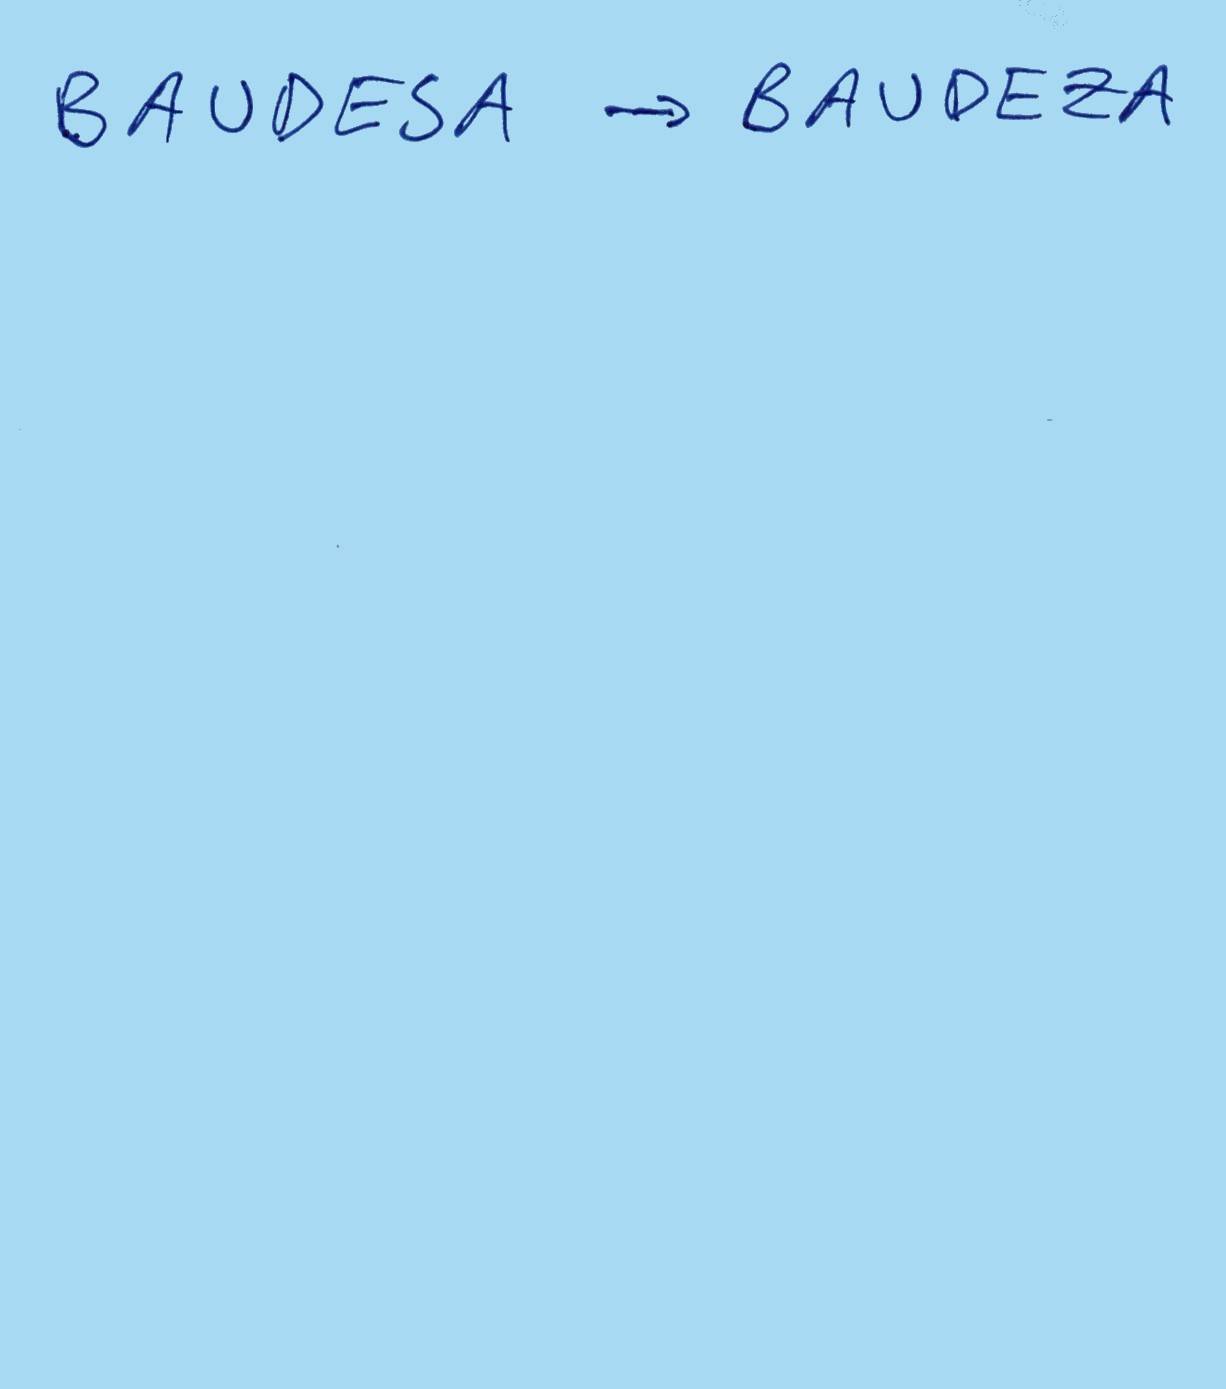 BAUDESA → BAUDEZA